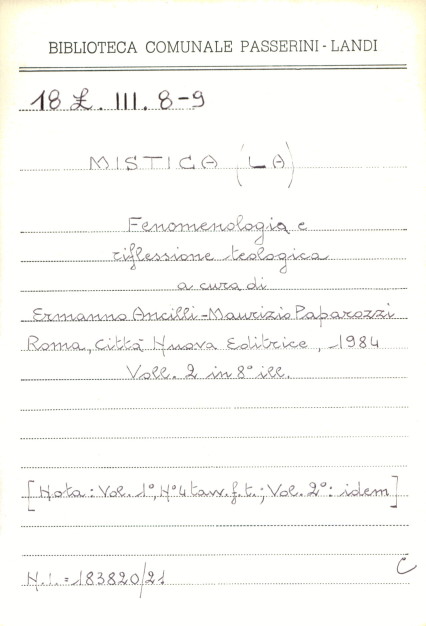 BIBLIOTECA COMUNALE PASSERINI - LANDI
18 £. III. 8-9
MISTICA (LA)
Fenomenologia e
riflessione teologica
a cura di
Ermanno Ancilli - Maurizio Paparozzi
Roma, Città Nuova Editrice, 1984
Voll. 2 in 8° ill.
[Nota: Vol. 1°, N° 4 tavv. f. t.; Vol. 2°: idem]
C
N.i. = 183820/21